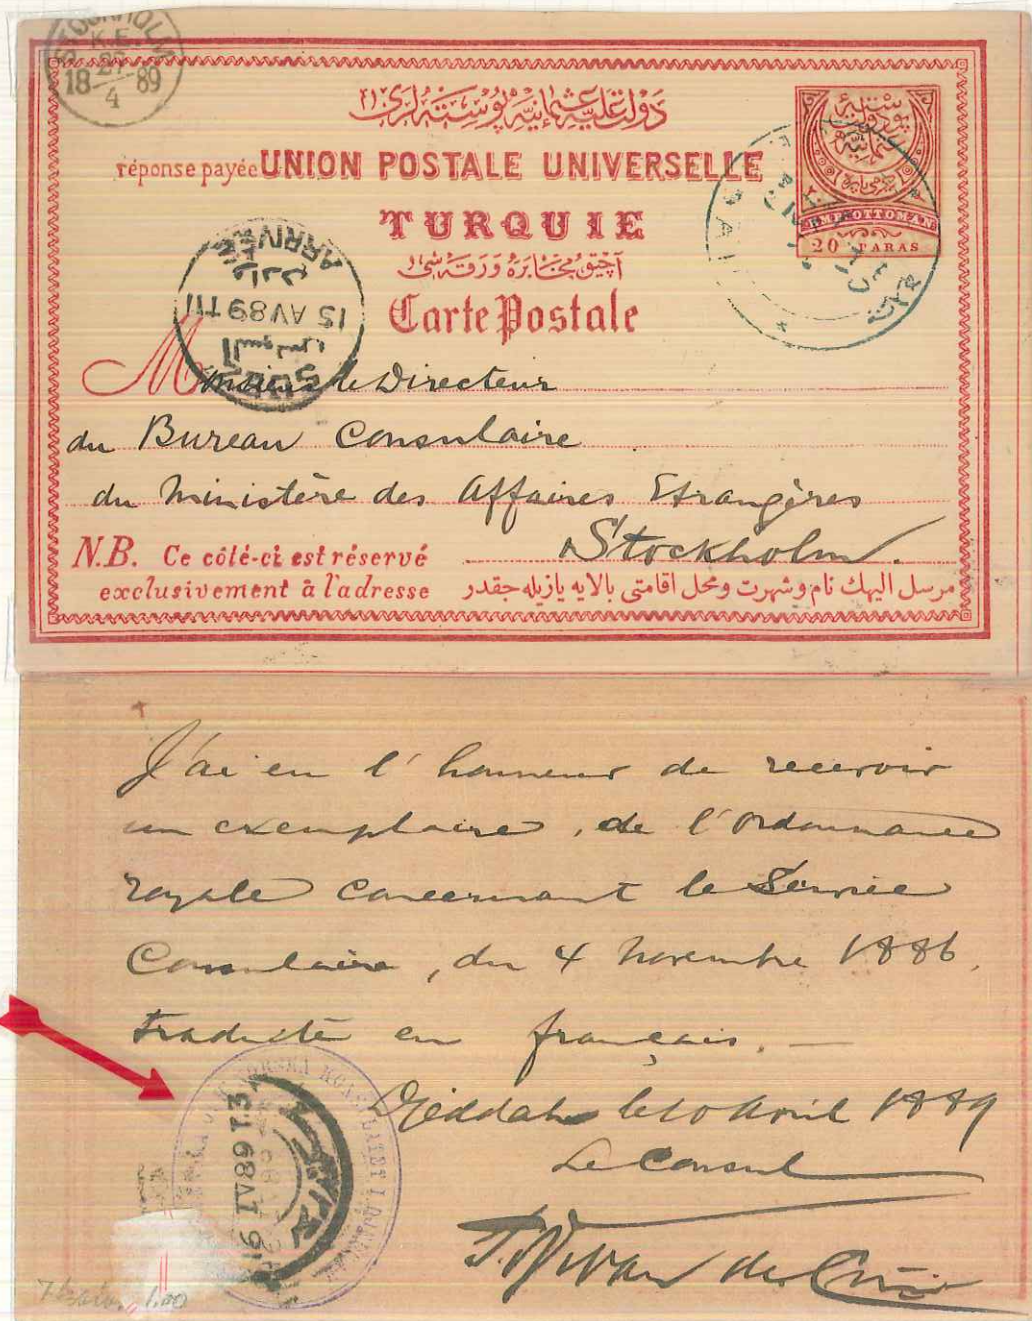 STOCKHOLM
K.E.
27
18 4 89
دولت عليه عثمانيه پوسته لری
réponse payée UNION POSTALE UNIVERSELLE
TURQUIE
EMP. OTTOMAN
20 PARAS
آچيق مخابره ورقه سی
Carte Postale
ARRIVÉE
15 AV 89 TII
SUEZ
Monsieur le Directeur
du Bureau Consulaire
du Ministère des Affaires Etrangères
Stockholm.
N.B. Ce côlé-ci est réservé
exclusivement à l'adresse
مرسل اليهك نام وشهرت ومحل اقامتی بالایه یازیله جقدر
J'ai eu l'honneur de recevoir
un exemplaire, de l'ordonnance
royale concernant le Service
Consulaire, du 4 novembre 1886.
traduite en français. —
Djeddah le 10 Avril 1889
Le Consul
16 IV 89 T3